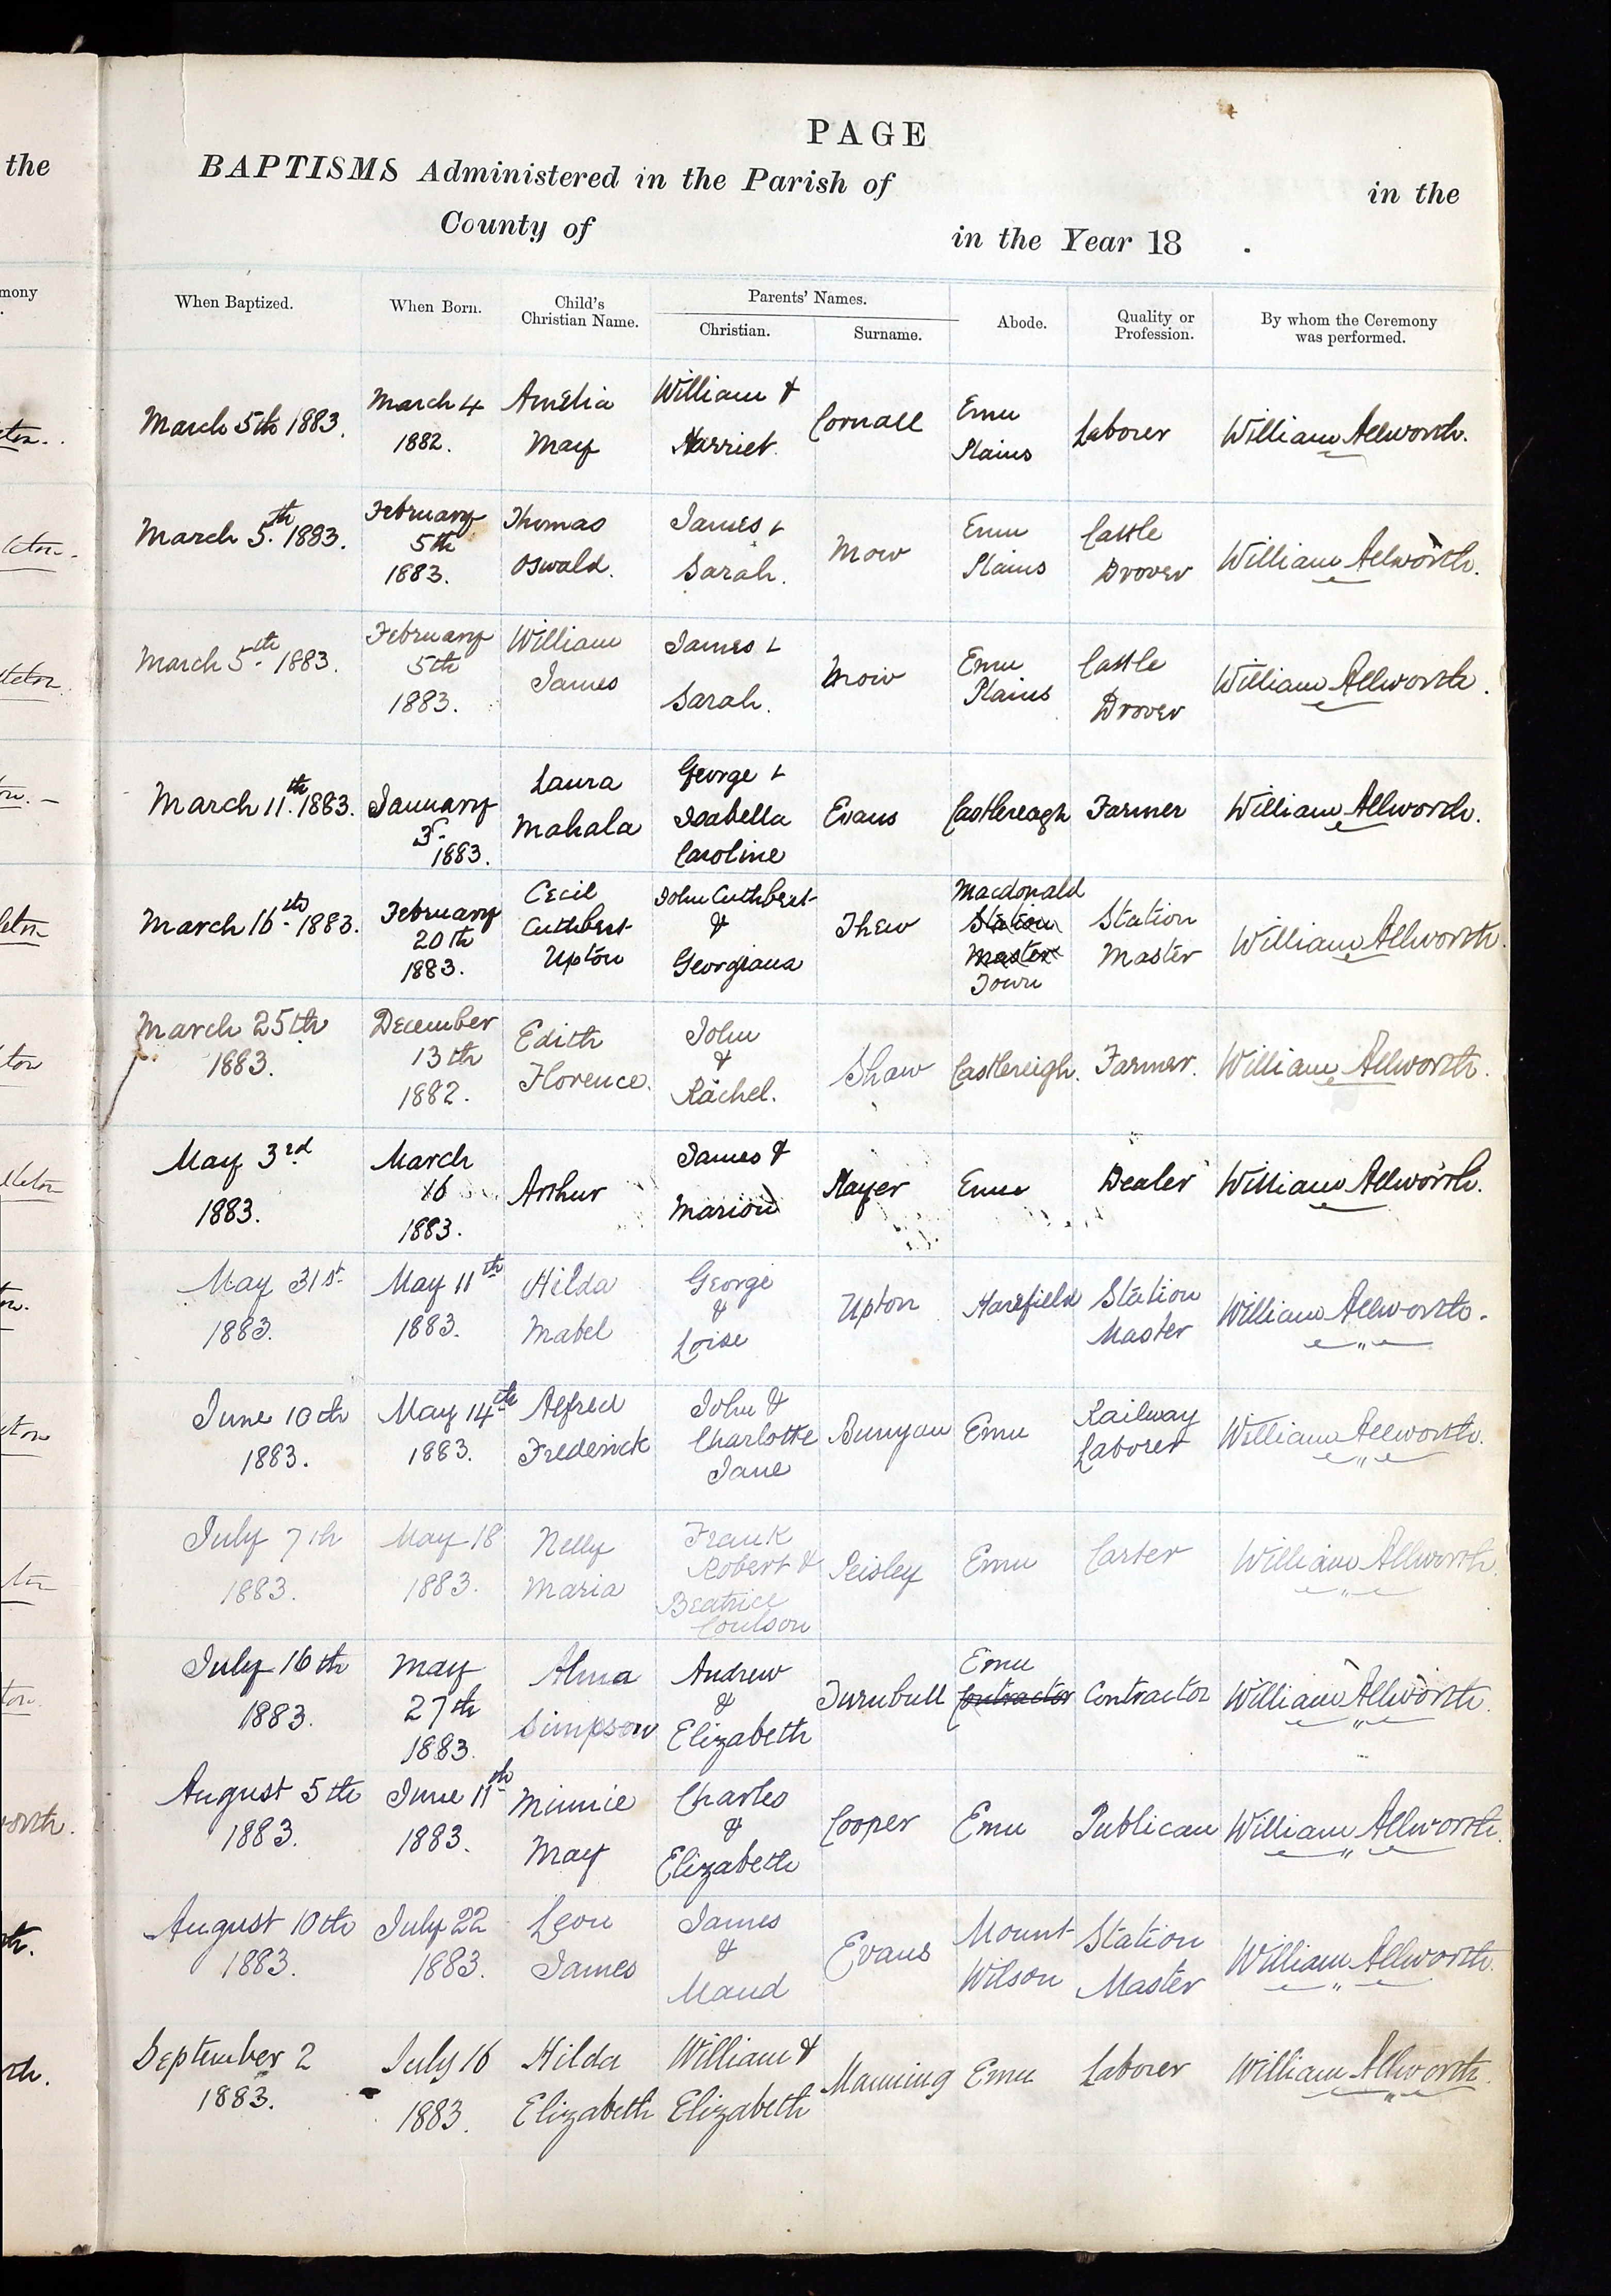 PAGE
BAPTISMS Administered in the Parish of in the
County of in the Year 18 .
When Baptized. When Born. Child's Christian Name. Parents' Names. Christian. Surname. Abode. Quality or Profession. By whom the Ceremony was performed.
March 5th 1883. March 4 1882. Amelia May William & Harriet. Cornall Emu Plains Laborer William Allworth.
March 5th 1883. February 5th 1883. Thomas Oswald. James & Sarah. Mow Emu Plains Cattle Drover William Allworth.
March 5th 1883. February 5th 1883. William James James & Sarah. Mow Emu Plains Cattle Drover William Allworth.
March 11th 1883. January 3 1883. Laura Mahala George & Isabella Caroline Evans Castlereagh Farmer William Allworth.
March 16th 1883. February 20th 1883. Cecil Cuthbert Upton John Cuthbert & Georgiana Thew Macdonald Station Master Town Station Master William Allworth.
March 25th 1883. December 13th 1882. Edith Florence. John & Rachel. Shaw Castlereigh. Farmer. William Allworth.
May 3rd 1883. March 16 1883. Arthur James & Marion Player Emu Dealer William Allworth.
May 31st 1883. May 11th 1883. Hilda Mabel George & Loise Upton Harefield Station Master William Allworth.
June 10th 1883. May 14th 1883. Alfred Frederick John & Charlotte Jane Bunyan Emu Railway Laborer William Allworth.
July 7th 1883. May 18 1883. Nelly Maria Frank Robert & Beatrice Coulson Peisley Emu Carter William Allworth.
July 16th 1883. May 27th 1883. Alma Simpson Andrew & Elizabeth Turnbull Emu Contractor Contractor William Allworth.
August 5th 1883. June 11th 1883. Minnie May Charles & Elizabeth Cooper Emu Publican William Allworth.
August 10th 1883. July 22 1883. Leon James James & Maud Evans Mount Wilson Station Master William Allworth.
September 2 1883. July 16 1883. Hilda Elizabeth William & Elizabeth Manning Emu Laborer William Allworth.